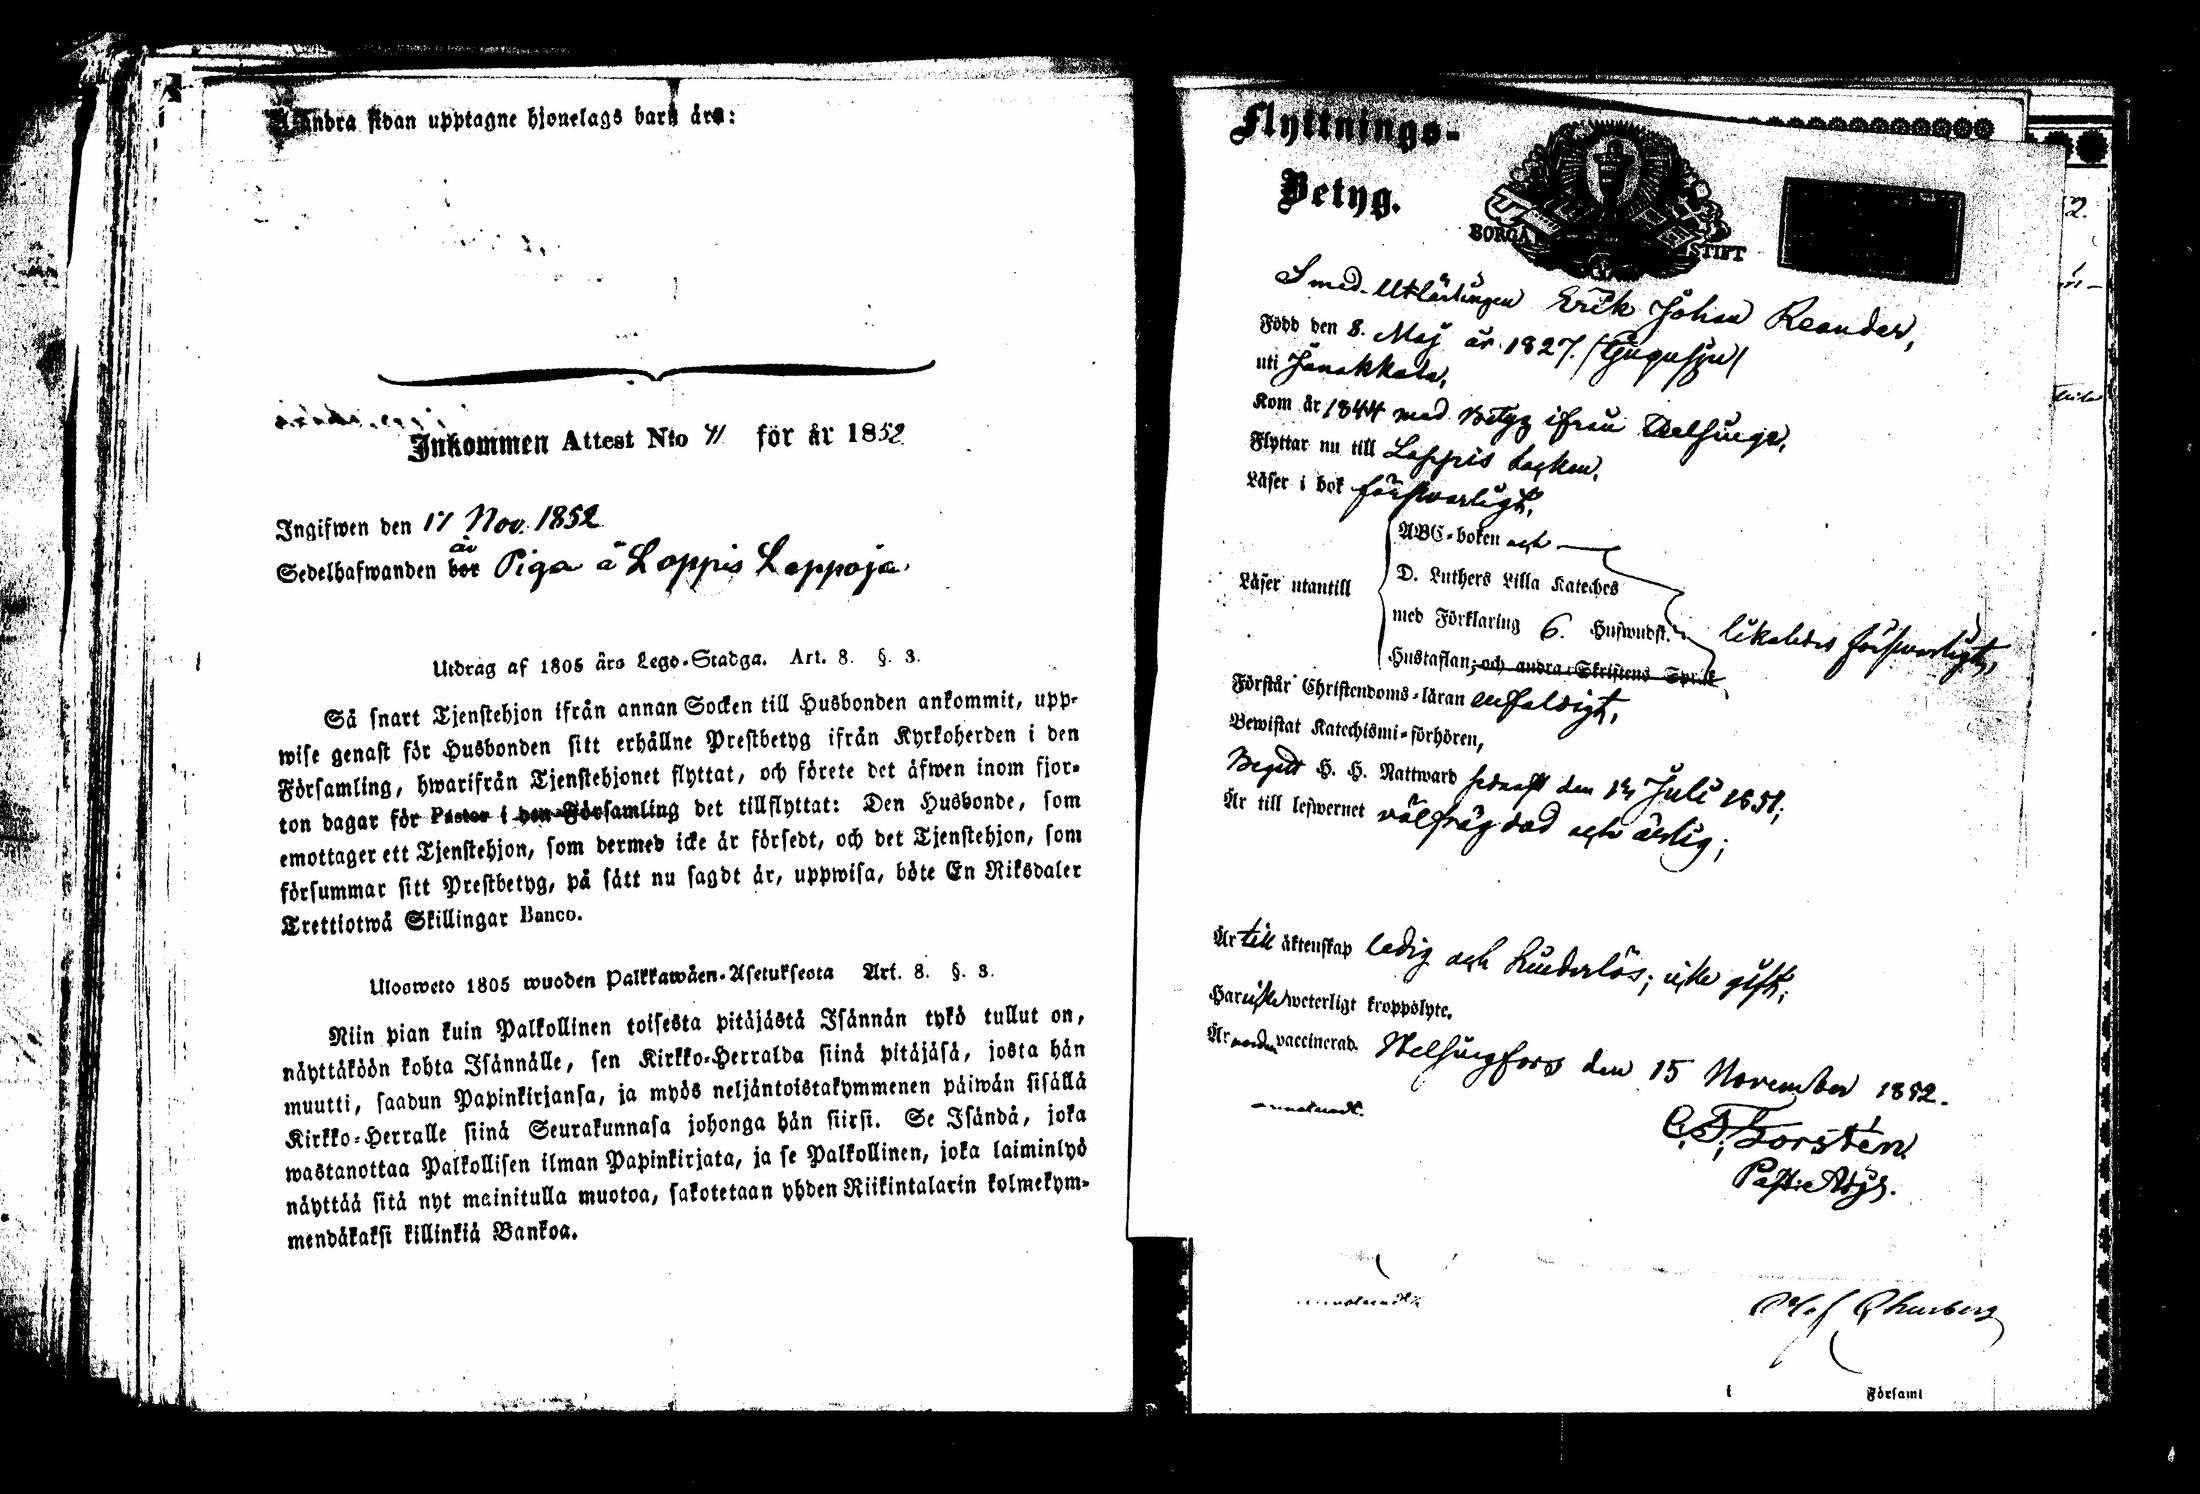 andra sidan upptagne hjonelags barn äro:
Inkommen Attest N:o 41 för år 1852
Ingifwen den 17 Nov. 1852
är
Sedelhafwanden bor Piga å Loppis Leppoja.
Utdrag af 1805 års Lego-Stadga. Art. 8. §. 3.
Så snart Tjenstehjon ifrån annan Socken till Husbonden ankommit, upp-
wise genast för Husbonden sitt erhållne Prestbetyg ifrån Kyrkoherden i den
Församling, hwarifrån Tjenstehjonet flyttat, och förete det äfwen inom fjor-
ton dagar för Pastor i den Församling det tillflyttat: Den Husbonde, som
emottager ett Tjenstehjon, som dermed icke är försedt, och det Tjenstehjon, som
försummar sitt Prestbetyg, på sätt nu sagdt är, uppwisa, böte En Riksdaler
Trettiotwå Skillingar Banco.
Ulosweto 1805 wuoden Palkkawäen-Asetuksesta Art. 8. §. 3.
Niin pian kuin Palkollinen toisesta pitäjästä Isännän tykö tullut on,
näyttäköön kohta Isännälle, sen Kirkko-Herralda siinä pitäjäsä, josta hän
muutti, saadun Papinkirjansa, ja myös neljäntoistakymmenen päiwän sisällä
Kirkko-Herralle siinä Seurakunnasa johonga hän siirsi. Se Isändä, joka
wastanottaa Palkollisen ilman Papinkirjata, ja se Palkollinen, joka laiminlyö
näyttää sitä nyt mainitulla muotoa, sakotetaan yhden Riikintalarin kolmekym-
mendäkaksi killinkiä Bankoa.
Flyttnings-
Betyg.
BORGÅ STIFT
Smed-Utlärlingen Erik Johan Reander,
Född den 8. Maj år 1827. /tjugusju/
uti Janakkala,
Kom år 1844 med Betyg ifrån Helsinge,
Flyttar nu till Loppis Socken,
Läser i bok försvarligt,
Läser utantill
ABC-boken och
D. Luthers Lilla Kateches
med Förklaring 6. Hufwudst.
Hustaflan, och andra Skriftens Språk
likaledes försvarligt,
Förstår Christendoms-läran enfaldigt,
Bewistat Katechismi-förhören,
Begått H. H. Nattward sednast den 14 Juli 1851;
Är till lefwernet välfräjdad och ärlig;
Är till äktenskap ledig och hinderlös; icke gift;
Har icke weterligt kroppslyte.
Är vaccinerad.
Helsingfors den 15 November 1852.
C. J. Forstén
Past:e Adj:s.
i Församl